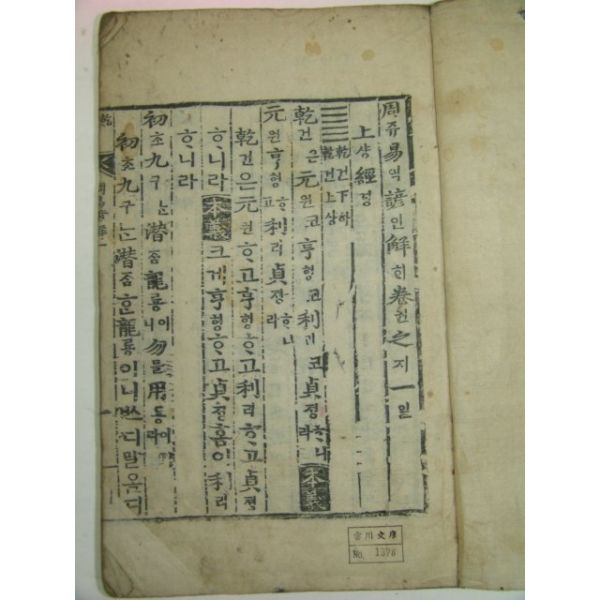 周쥬易역諺언解ᄒᆡ卷권之지一일
上샹經경
乾건下하
乾건上샹
乾건은元원코亨형코利리코貞뎡ᄒᆞ니라 本義
元원亨형ᄒᆞ고利리貞뎡ᄒᆞ니라
乾건은元원ᄒᆞ고亨형ᄒᆞ고利리ᄒᆞ고貞뎡
ᄒᆞ니라 本義 크게亨형ᄒᆞ고貞뎡홈이利리
ᄒᆞ니라
初초九구ᄂᆞᆫ潛ᄌᆞᆷ龍룡이니勿믈用용이니라
初초九구ᄂᆞᆫ潛ᄌᆞᆷᄒᆞᆫ龍룡이니ᄡᅳ디말올디
乾
川文庫
No.